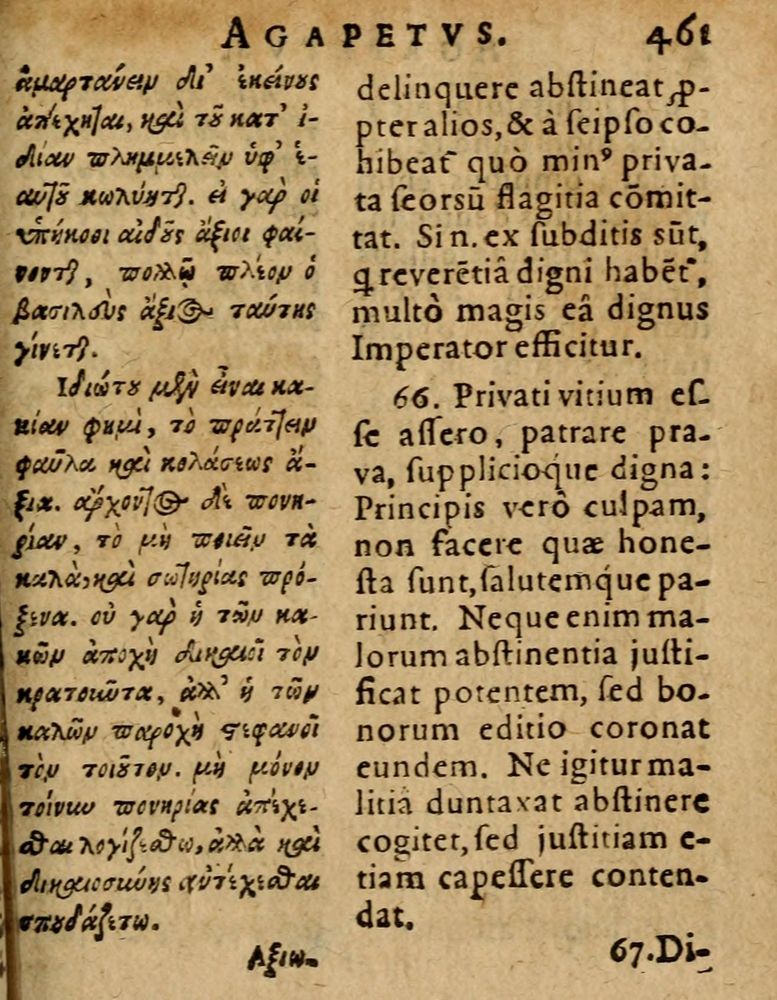 AGAPETVS. 461
ἁμαρτάνειν δι' ἐκείνους
ἀπέχηται, καὶ τοῦ κατ' ἰ-
δίαν πλημμελεῖν ὑφ' ἑ-
αυτοῦ κωλύηται. εἰ γὰρ οἱ
ὑπήκοοι αἰδοῦς ἄξιοι φαί-
νονται, πολλῷ πλέον ὁ
βασιλεὺς ἄξιος ταύτης
γίνεται.
Ιδιώτου μὲν εἶναι κα-
κίαν φημὶ, τὸ πράττειν
φαῦλα καὶ κολάσεως ἄ-
ξια. ἄρχοντος δὲ πονη-
ρίαν, τὸ μὴ ποιεῖν τὰ
καλὰ, καὶ σωτηρίας πρό-
ξενα. οὐ γὰρ ἡ τῶν κα-
κῶν ἀποχὴ δικαιοῖ τὸν
κρατοῦντα, ἀλλ' ἡ τῶν
καλῶν παροχὴ στεφανοῖ
τὸν τοιοῦτον. μὴ μόνον
τοίνυν πονηρίας ἀπέχε-
σθαι λογιζέσθω, ἀλλὰ καὶ
δικαιοσύνης ἀντέχεσθαι
σπουδάζετω.
Αξιω-
delinquere abſtineat ꝓ-
pter alios, & à ſeipſo co-
hibeat᷑ quò minꝰ priva-
ta ſeorsū flagitia cōmit-
tat. Si n. ex ſubditis sūt,
q reverētiâ digni habēt᷑,
multò magis eâ dignus
Imperator efficitur.
66. Privati vitium eſ-
ſe aſſero, patrare pra-
va, ſupplicioque digna:
Principis verò culpam,
non facere quæ hone-
ſta ſunt, ſalutemq́ue pa-
riunt. Neque enim ma-
lorum abſtinentia juſti-
ficat potentem, ſed bo-
norum editio coronat
eundem. Ne igitur ma-
litiâ duntaxat abſtinere
cogitet, ſed juſtitiam e-
tiam capeſſere conten-
dat.
67. Di-